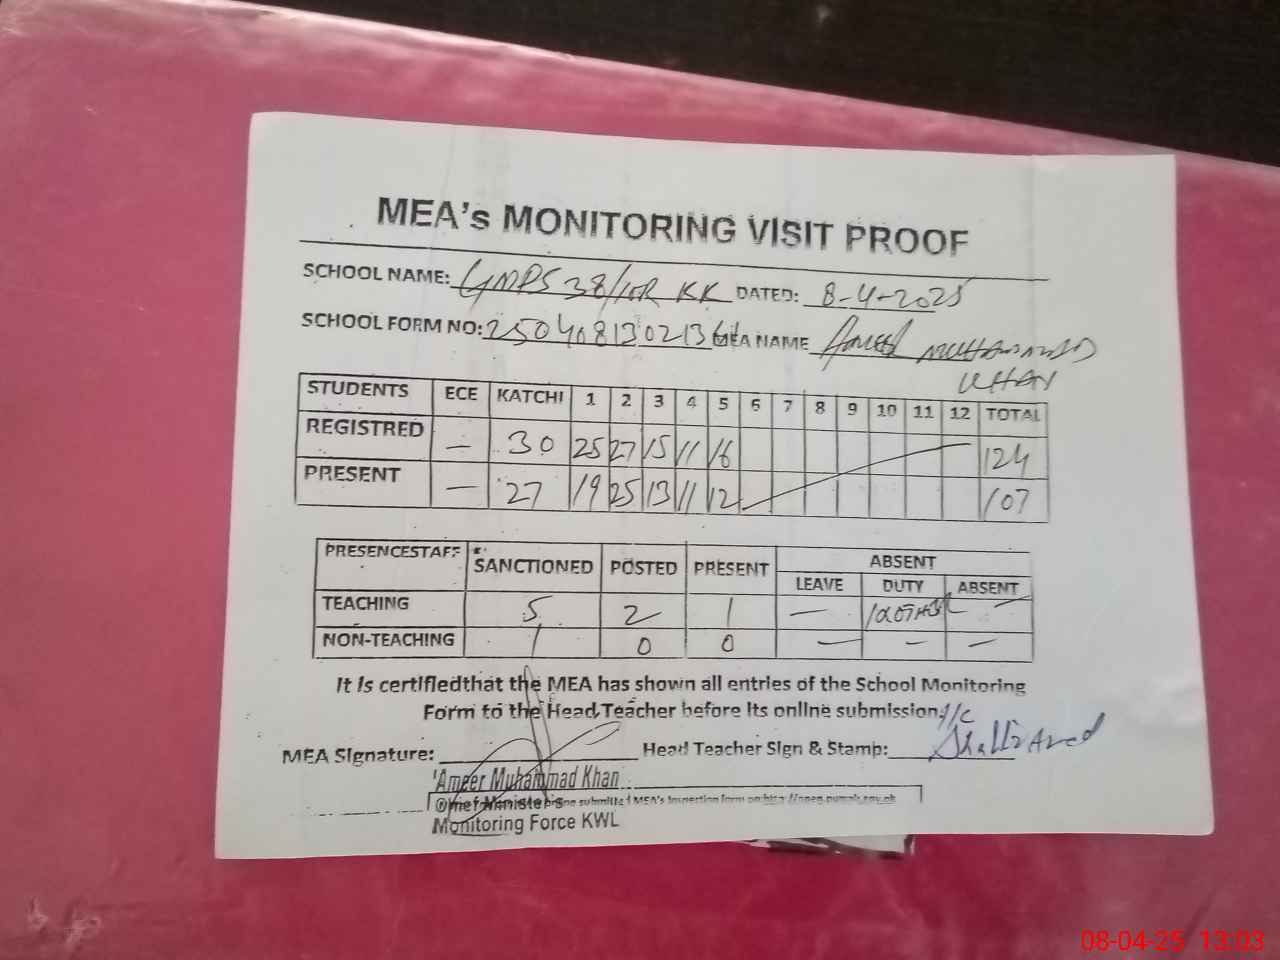 MEA's MONITORING VISIT PROOF
SCHOOL NAME: GMPS 38/10R KK DATED: 8-4-2025
SCHOOL FORM NO: 250408130213 MEA NAME Ameer MUHAMMAD
KHAN
STUDENTS ECE KATCHI 1 2 3 4 5 6 7 8 9 10 11 12 TOTAL
REGISTRED — 30 25 27 15 11 16 124
PRESENT — 27 19 25 13 11 12 107
PRESENCESTAFF SANCTIONED POSTED PRESENT ABSENT
LEAVE DUTY ABSENT
TEACHING 5 2 1 — —
NON-TEACHING 1 0 0 — — —
It is certifiedthat the MEA has shown all entries of the School Monitoring
Form to the Head Teacher before its online submission. I/C
MEA Signature: Head Teacher Sign & Stamp:
Ameer Muhammad Khan
Chief Minister's submitted MEA's inspection form on
Monitoring Force KWL
08-04-25 13:03